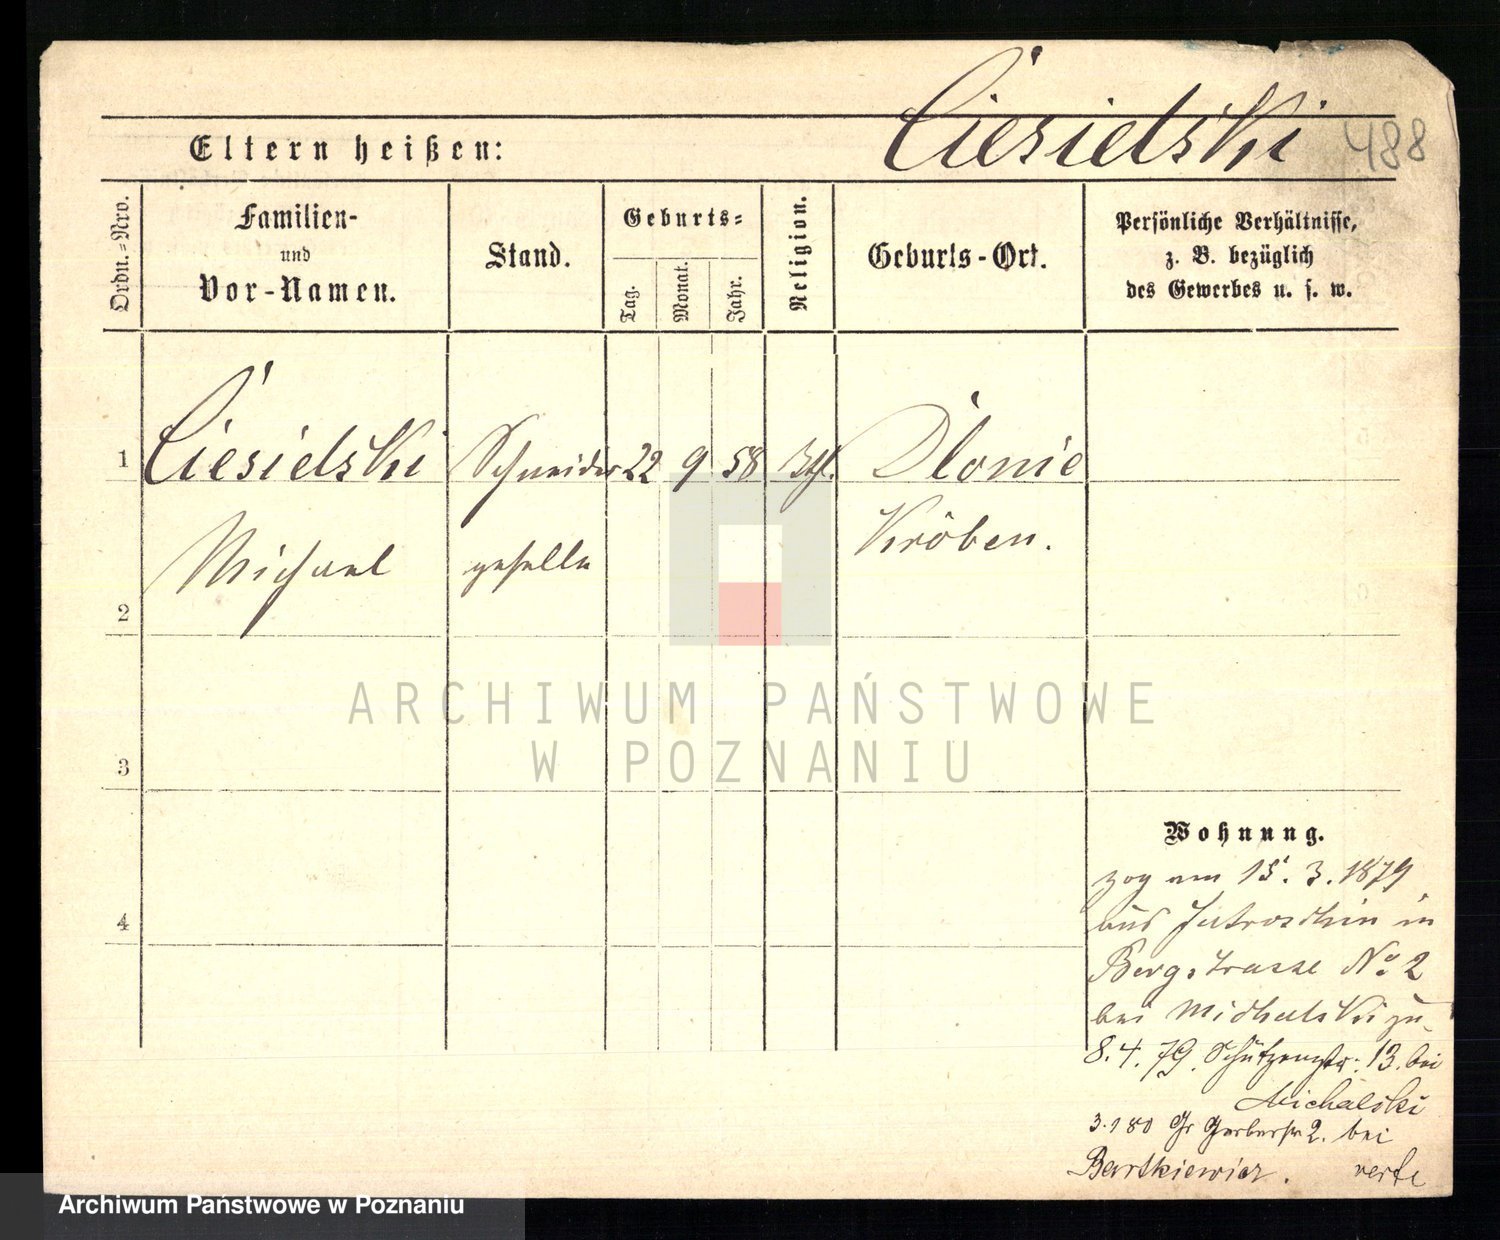 Ciesielski 488
Eltern heißen:
Ordn.=Nro.
Familien-
und
Vor-Namen.
Stand.
Geburts=
Tag.
Monat.
Jahr.
Religion.
Geburts-Ort.
Persönliche Verhältnisse,
z. B. bezüglich
des Gewerbes u. s. w.
1 Ciesielski Schneider 22 9 58 Kth. Dlonie
Michael geselle Kröben.
2
3
4
ARCHIWUM PAŃSTWOWE
W POZNANIU
Wohnung.
zog am 15. 3. 1879
aus Jutroschin in
Bergstrasse No 2
bei Michalski zu
8. 4. 79. Schützenstr: 13. bei
Michalski
3. 1 80 Gr Gerberstr 2. bei
Bartkiewicz. verte
Archiwum Państwowe w Poznaniu